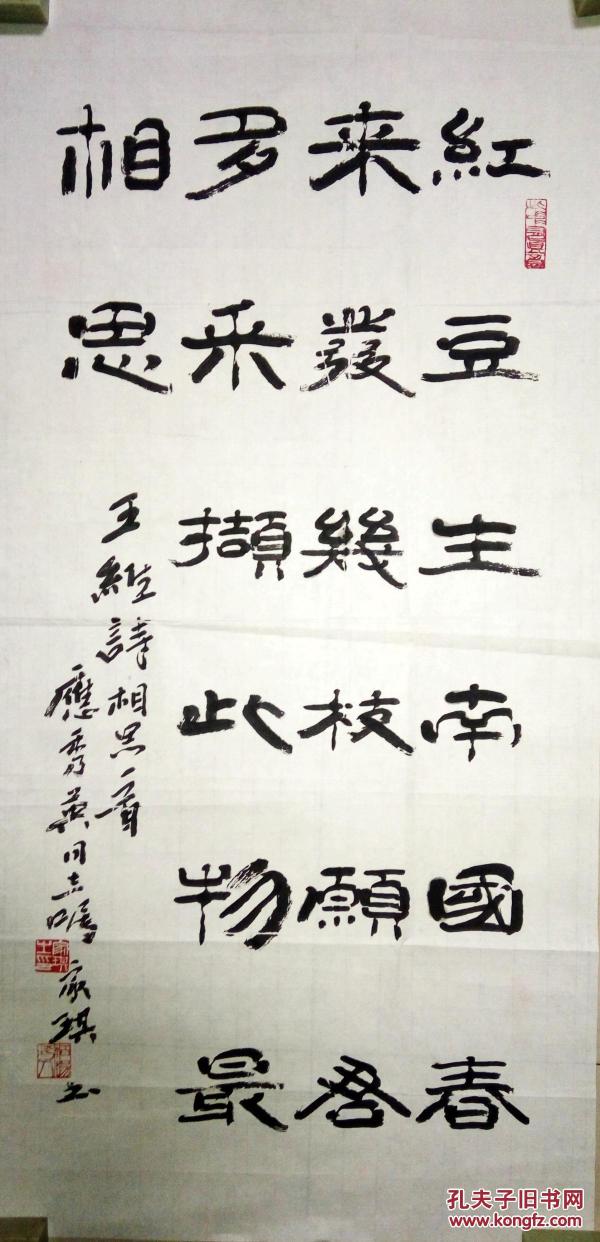 紅豆生南國春
来發幾枝願君
多采擷此物最
相思
王維詩相思一首
應秀英同志嘱 家琪书
孔夫子旧书网
www.kongfz.com